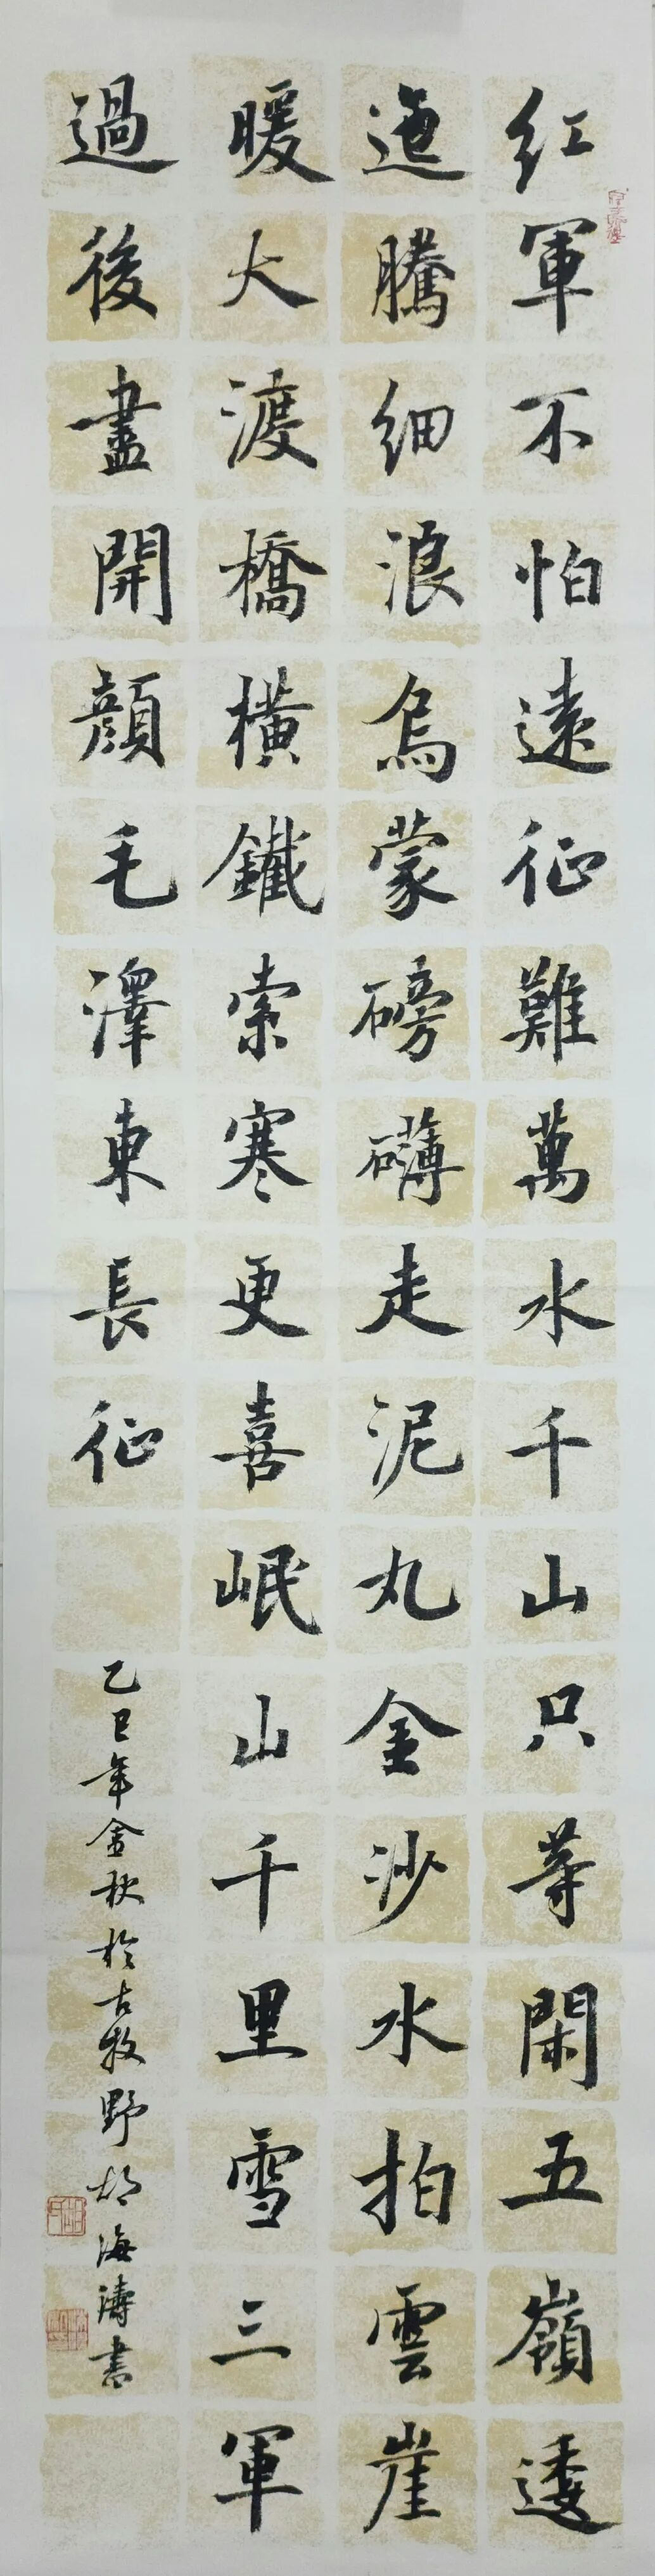 红軍不怕遠征難萬水千山只等閑五嶺逶
迤騰細浪烏蒙磅礴走泥丸金沙水拍雲崖
暖大渡橋横鐵索寒更喜岷山千里雪三軍
過後盡開顔毛澤東長征
乙巳年金秋於古牧野胡海濤書